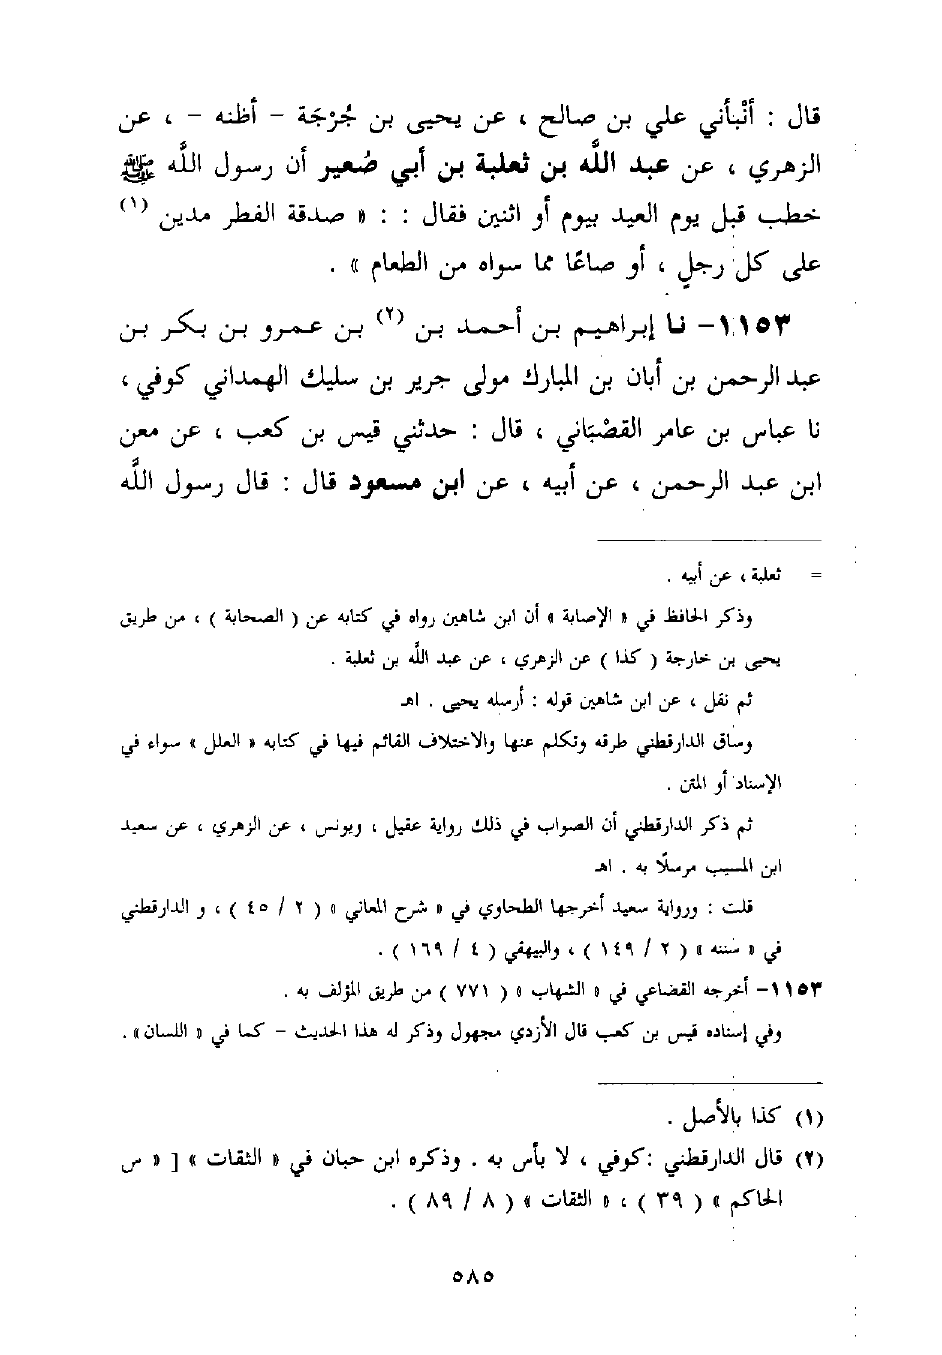 قال : أنْبأني علي بن صالح ، عن يحيى بن جُرْجَة – أظنه – ، عن
الزهري ، عن عبد اللَّه بن ثعلبة بن أبي صُعير أن رسول اللَّه ﷺ
خطب قبل يوم العيد بيوم أو اثنين فقال : : « صدقة الفطر مدين (١)
على كل رجلٍ ، أو صاعًا مما سواه من الطعام » .
١١٥٣– نا إبراهيم بن أحمد بن (٢) بن عمرو بن بكر بن
عبد الرحمن بن أبان بن المبارك مولى جرير بن سليك الهمداني كوفي ،
نا عباس بن عامر القصْبَاني ، قال : حدثني قيس بن كعب ، عن معن
ابن عبد الرحمن ، عن أبيه ، عن ابن مسعود قال : قال رسول اللَّه
= ثعلبة ، عن أبيه .
وذكر الحافظ في « الإصابة » أن ابن شاهين رواه في كتابه عن ( الصحابة ) ، من طريق
يحيى بن خارجة ( كذا ) عن الزهري ، عن عبد اللَّه بن ثعلبة .
ثم نقل ، عن ابن شاهين قوله : أرسله يحيى . اهـ
وساق الدارقطني طرقه وتكلم عنها والاختلاف القائم فيها في كتابه « العلل » سواء في
الإسناد أو المتن .
ثم ذكر الدارقطني أن الصواب في ذلك رواية عقيل ، ويونس ، عن الزهري ، عن سعيد
ابن المسيب مرسلًا به . اهـ
قلت : ورواية سعيد أخرجها الطحاوي في « شرح المعاني » ( ٢ / ٤٥ ) ، و الدارقطني
في « سننه » ( ٢ / ١٤٩ ) ، والبيهقي ( ٤ / ١٦٩ ) .
١١٥٣– أخرجه القضاعي في « الشهاب » ( ٧٧١ ) من طريق المؤلف به .
وفي إسناده قيس بن كعب قال الأزدي مجهول وذكر له هذا الحديث – كما في « اللسان» .
(١) كذا بالأصل .
(٢) قال الدارقطني :كوفي ، لا بأس به . وذكره ابن حبان في « الثقات » [ « س
الحاكم » ( ٣٩ ) ، « الثقات » ( ٨ / ٨٩ ) .
٥٨٥